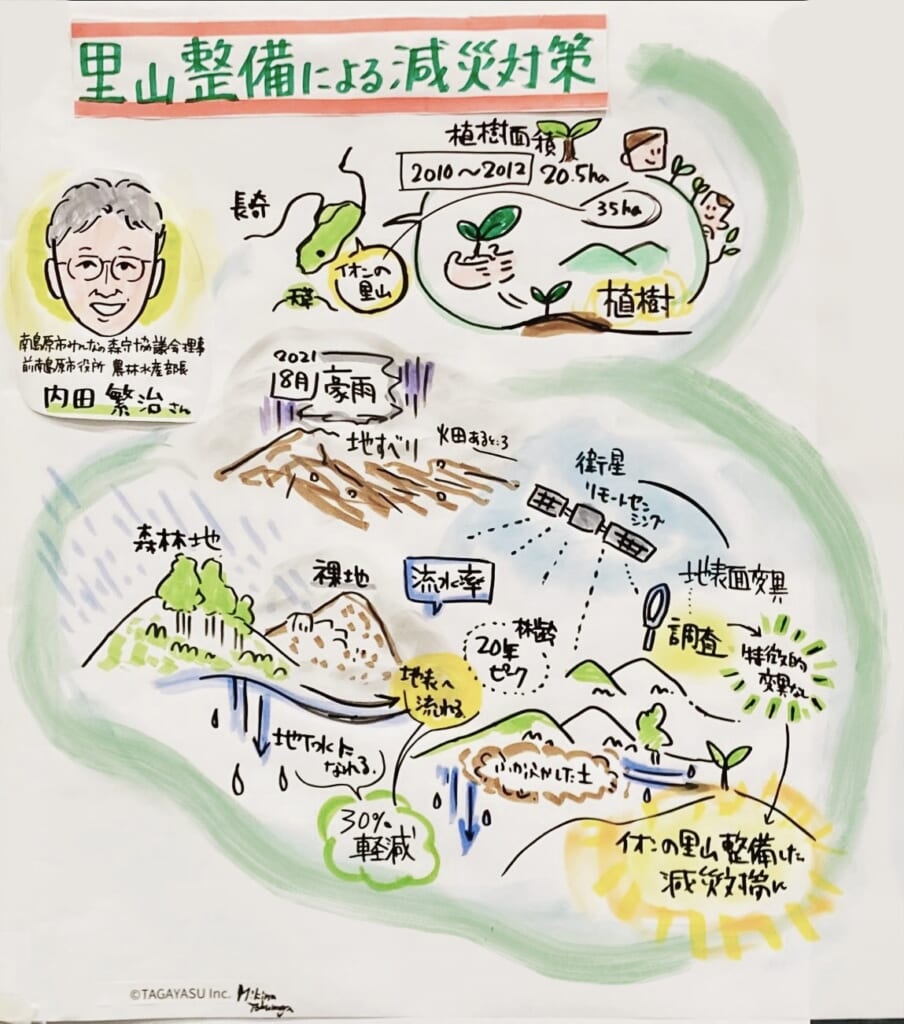 里山整備による減災対策
植樹面積
2010〜2012 20.5ha
35ha
長崎
イオンの
里山
天草
植樹
南島原市みんなの森守協議会理事
前南島原市役所 農林水産部長
内田 繁治さん
2021
8月 豪雨
地すべり
火田あるところ
衛星
リモートセン
シング
森林地
裸地
流水率
地表面変異
調査
林齢
20年
ピーク
特徴的
変異なし
地表へ
流れる
地下水に
なれる
ふかふかした土
30%
軽減
イオンの里山整備した
減災対策に
©TAGAYASU Inc.